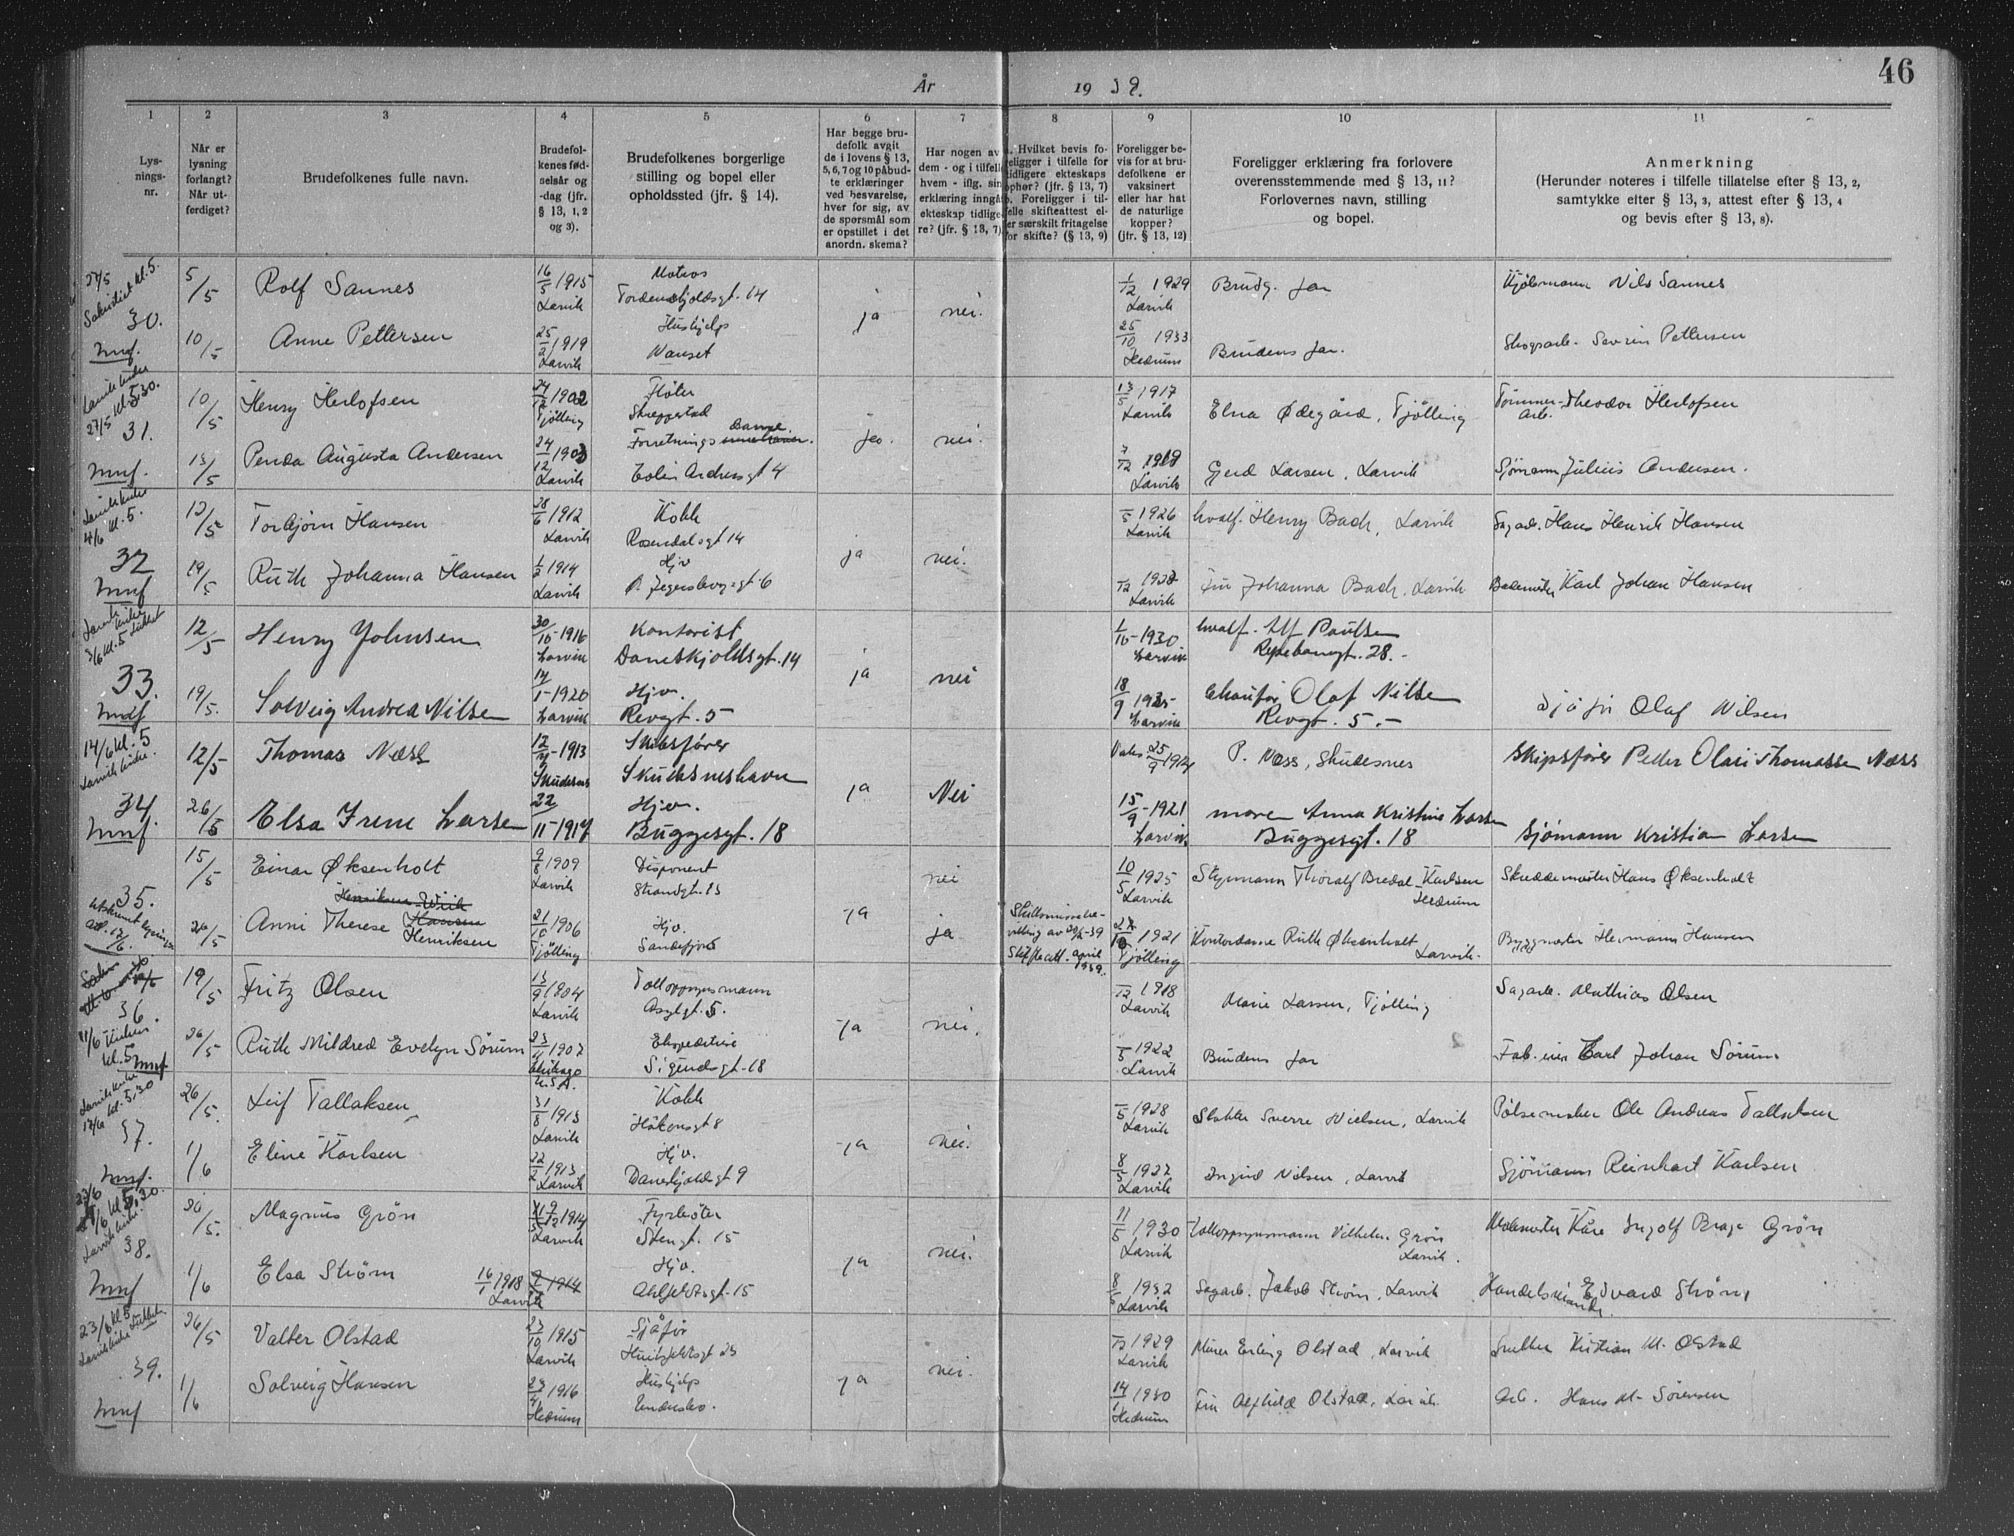 46
År 1939.
1 2 3 4 5 6 7 8 9 10 11
Lys-
nings-
nr.
Når er
lysning
forlangt?
Når ut-
ferdiget?
Brudefolkenes fulle navn.
Brudefol-
kenes fød-
selsår og
-dag (jfr.
§ 13, 1, 2
og 3).
Brudefolkenes borgerlige
stilling og bopel eller
opholdssted (jfr. § 14).
Har begge bru-
defolk avgit
de i lovens § 13,
5, 6, 7 og 10 påbud-
te erklæringer
ved besvarelse,
hver for sig, av
de spørsmål som
er opstillet i det
anordn. skema?
Har nogen av
dem - og i tilfelle
hvem - iflg. sin
erklæring inngåt
ekteskap tidlige-
re? (jfr. § 13, 7)
Hvilket bevis fo-
religger i tilfelle for
tidligere ekteskaps
ophør? (jfr. § 13, 7)
Foreligger i til-
felle skifteattest el-
er særskilt fritagelse
for skifte? (§ 13, 9)
Foreligger be-
vis for at bru-
defolkene er
vaksinert
eller har hat
de naturlige
kopper?
(jfr. § 13, 12)
Foreligger erklæring fra forlovere
overensstemmende med § 13, 11?
Forlovernes navn, stilling
og bopel.
Anmerkning
(Herunder noteres i tilfelle tillatelse efter § 13, 2,
samtykke efter § 13, 3, attest efter § 13, 4
og bevis efter § 13, 8).
27/5 kl. 5.
30.
5/5 Rolf Sannes 16/5 1915 Larvik Matros Tordenskjoldsgt. 14 ja nei. 1/12 1929 Larvik Brudg. far Kjølemann Nils Sannes
10/5 Anne Pettersen 25/2 1919 Larvik Hushjelp Nanset 25/10 1933 Hedrum Brudens far. Skogsarb. Severin Pettersen
Larvik kirke 27/5 kl. 5.30.
31.
10/5 Henry Herlofsen 24/12 1902 Tjølling Fløter Skreppestad ja. nei. 13/5 1917 Larvik Elna Ødegård, Tjølling Tømmer-arb. Theodor Herlofsen
13/5 Penda Augusta Andersen 24/12 1903 Larvik Forretnings dame. Colin Archersgt 4 7/12 1919 Larvik Gerd Larsen, Larvik Sjømann Julius Andersen.
Larvik kirke 4/6 kl. 5.
32
12/5 Torbjørn Hansen 28/6 1912 Larvik Kokk Rosendalsgt 14 ja nei. /5 1926 Larvik hvalf. Henry Bach, Larvik Sagarb. Hans Henrik Hansen
19/5 Ruth Johanna Hansen 1/2 1914 Larvik Hjv Ø. Jegersborgsgt. 6 /12 1928 Larvik Fru Johanna Bach, Larvik Bademester Karl Johan Hansen
3/6 kl. 5
33.
12/5 Henry Johnsen 30/10-1916 Larvik Kontorist Daneskjoldsgt. 14 ja nei 1/10-1930 Larvik hvalf. Alf Paulsen Repebanegt. 28.-
19/5. Solveig Andrea Nilsen 14/1-1920 Larvik Hjv. Revegt. 5 18/9 1935- Larvik Chaufør Olaf Nilsen Revegt. 5.- Sjåfør Olaf Nilsen
14/6 kl. 5 Larvik kirke.
34
12/5 Thomas Næss 1913 Skudesnes Skibsfører Skudesneshavn ja Nei 25/9 1914 P. Næss, Skudesnes Skipsfører Peder Olai Thomassen Næss
26/5 Elsa Irene Larsen 22/11-1917 Hjv. Buggesgt. 18 15/9-1921 Larvik moren Anna Kristine Larsen Buggesgt. 18 Sjømann Kristian Larsen
35.
15/5 Einar Øksenholt 9/8 1909 Larvik Disponent Strandgt. 13 ja nei 10/5 1925 Larvik Styrmann Thoralf Bredal-Karlsen Hedrum Skreddermester Hans Øksenholt
26/5 Anni Therese Hansen Henriksen 21/10 1906 Tjølling Hjv. Sandefjord ja Skilsmissebevilling av 20/2-39 Skifteatt. april 1939. 1921 Tjølling Kontordame Ruth Øksenholt Larvik. Byggmester Hermann Hansen
36.
11/6 kl. 5
19/5 Fritz Olsen 13/9 1904 Larvik Tollopsynsmann Asylgt. 5. ja nei. /12 1918 Larvik Marie Larsen, Tjølling Sagarb. Mathias Olsen
26/5 Ruth Mildred Evelyn Sørum 23/4 1907 Chikago U.S.A. Ekspeditrise Sigurdsgt. 18 /5 1922 Larvik Brudens far Fab. eier Carl Johan Sørum
Larvik kirke 17/6 kl. 5.30
37.
26/5. Leif Tallaksen 31/8 1913 Larvik Kokk Håkonsgt 8 ja nei. /5 1928 Larvik Slakter Sverre Nielsen, Larvik Pølsemaker Ole Andreas Tallaksen
1/6 Eline Karlsen 22/2 1913 Larvik Hjv. Daneskjoldsgt 9 8/5 1927 Larvik Ingrid Nilsen, Larvik Sjømann Reinhart Karlsen
Larvik kirke.
38.
30/5. Magnus Grôn 1914 Larvik Fyrbøter Stengt. 15 ja nei. 11/5 1930 Larvik Tolloppsynsmann Vilhelm Grøn Larvik. Malemester Kåre Ingolf Brage Grøn
1/6 Elsa Strøm 16/1 1918 Larvik Hjv. Ahlefeldtsgt. 15 8/6 1932 Larvik Sagarb. Jakob Strøm, Larvik Handelsreisende. Edvard Strøm
23/6 kl. 5
39.
26/5 Valter Olstad 23/10 1915 Larvik Sjåfør Huitfeldtsgt 23 ja nei. /12 1929 Larvik Murer Erling Olstad, Larvik Snekker Kristian M. Olstad
1/6 Solveig Hansen 23/4 1916 Hedrum Hushjelp 14/1 1930 Hedrum Fru Alfhild Olstad, Larvik Arb. Hans M. Sørensen